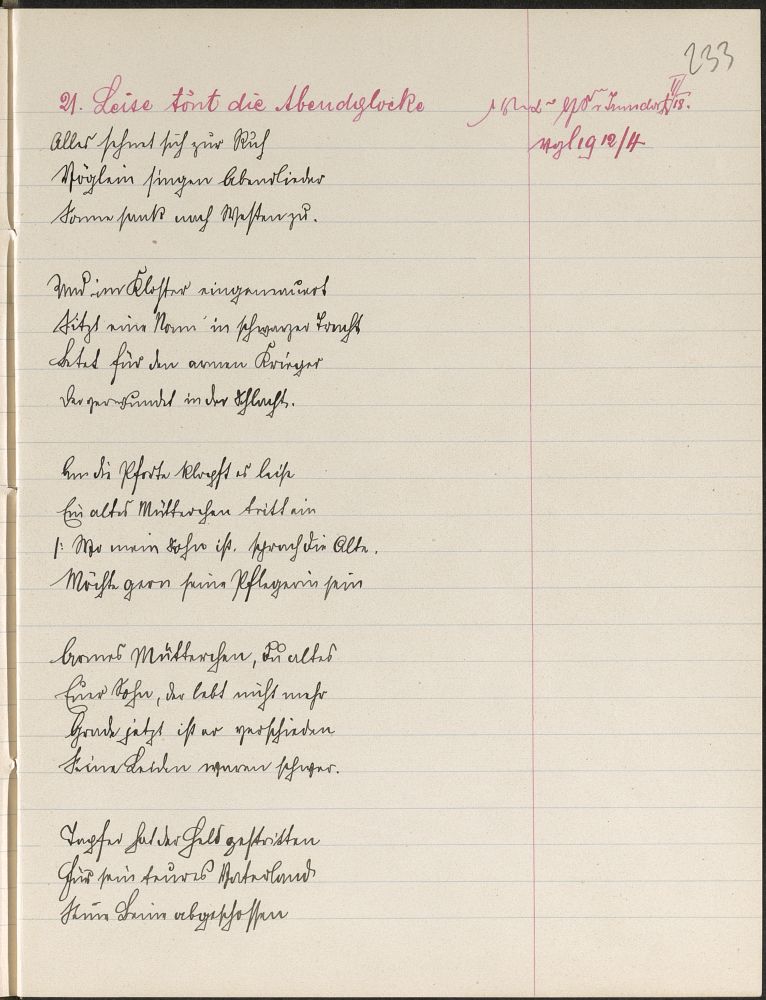 233
21. Leise tönt die Abendglocke
II/18.
vgl 19 12/4
Alles sehnet sich zur Ruh
Vöglein singen Abendlieder
Sonne sank nach Westen zu.
Und im Kloster eingemauert
Sitzt eine Nonn' in schwarzer Tracht
Betet für den armen Krieger
Der verwundet in der Schlacht.
An die Pforte klopft es leise
Ein altes Mütterchen tritt ein
/: Wo mein Sohn ist, sprach die Alte.
Möchte gern seine Pflegerin sein
Armes Mütterchen, du altes
Euer Sohn, der lebt nicht mehr
Grade jetzt ist er verschieden
Seine Leiden waren schwer.
Tapfer hat der Held gestritten
Für sein teures Vaterland
Seine Beine abgeschossen